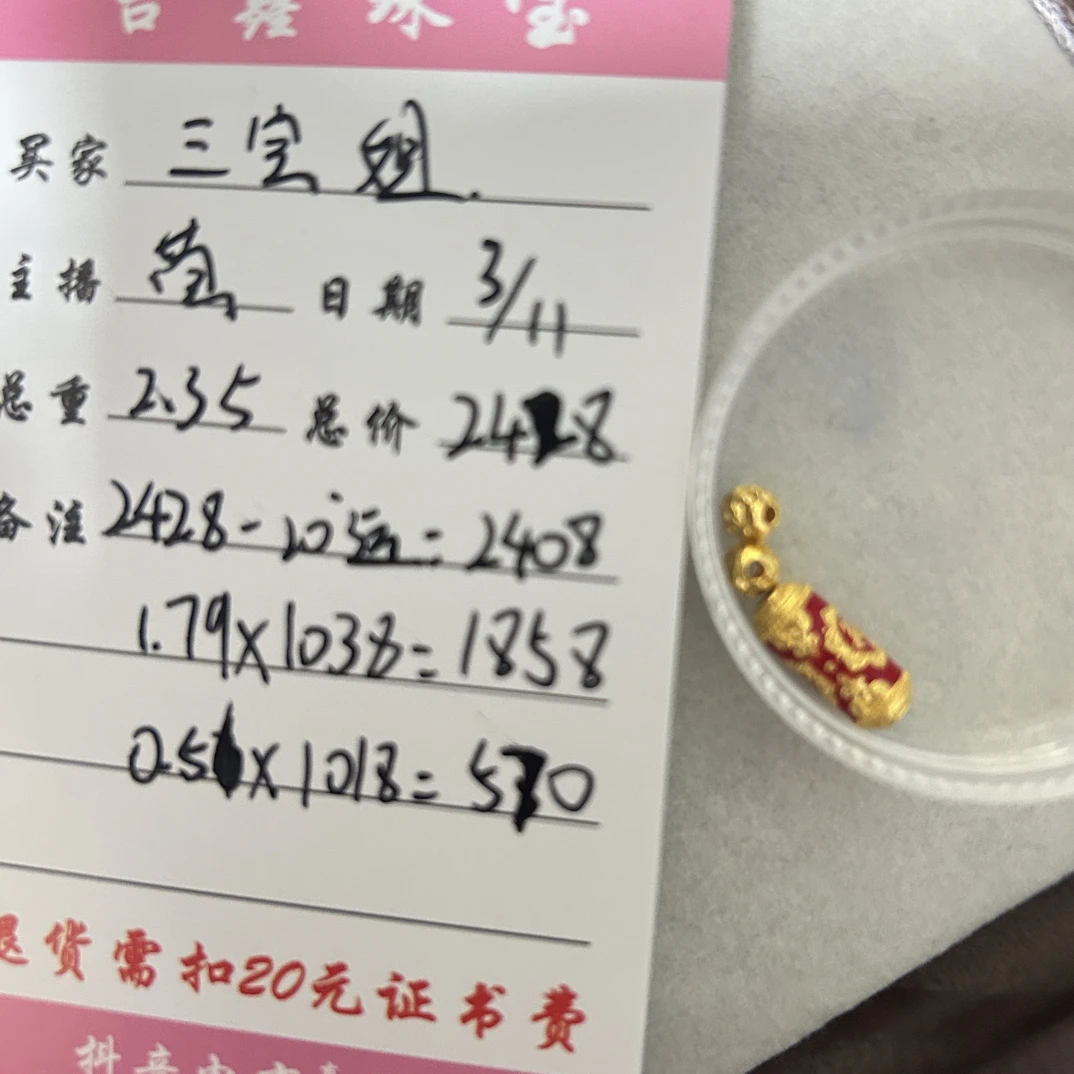 珠宝
买家 三宝姐.
主播 萤 日期 3/11
总重 2.35 总价 2428
备注 2428-20运=2408
1.79×1038=1858
0.56×1018=570
退货需扣20元证书费
抖音